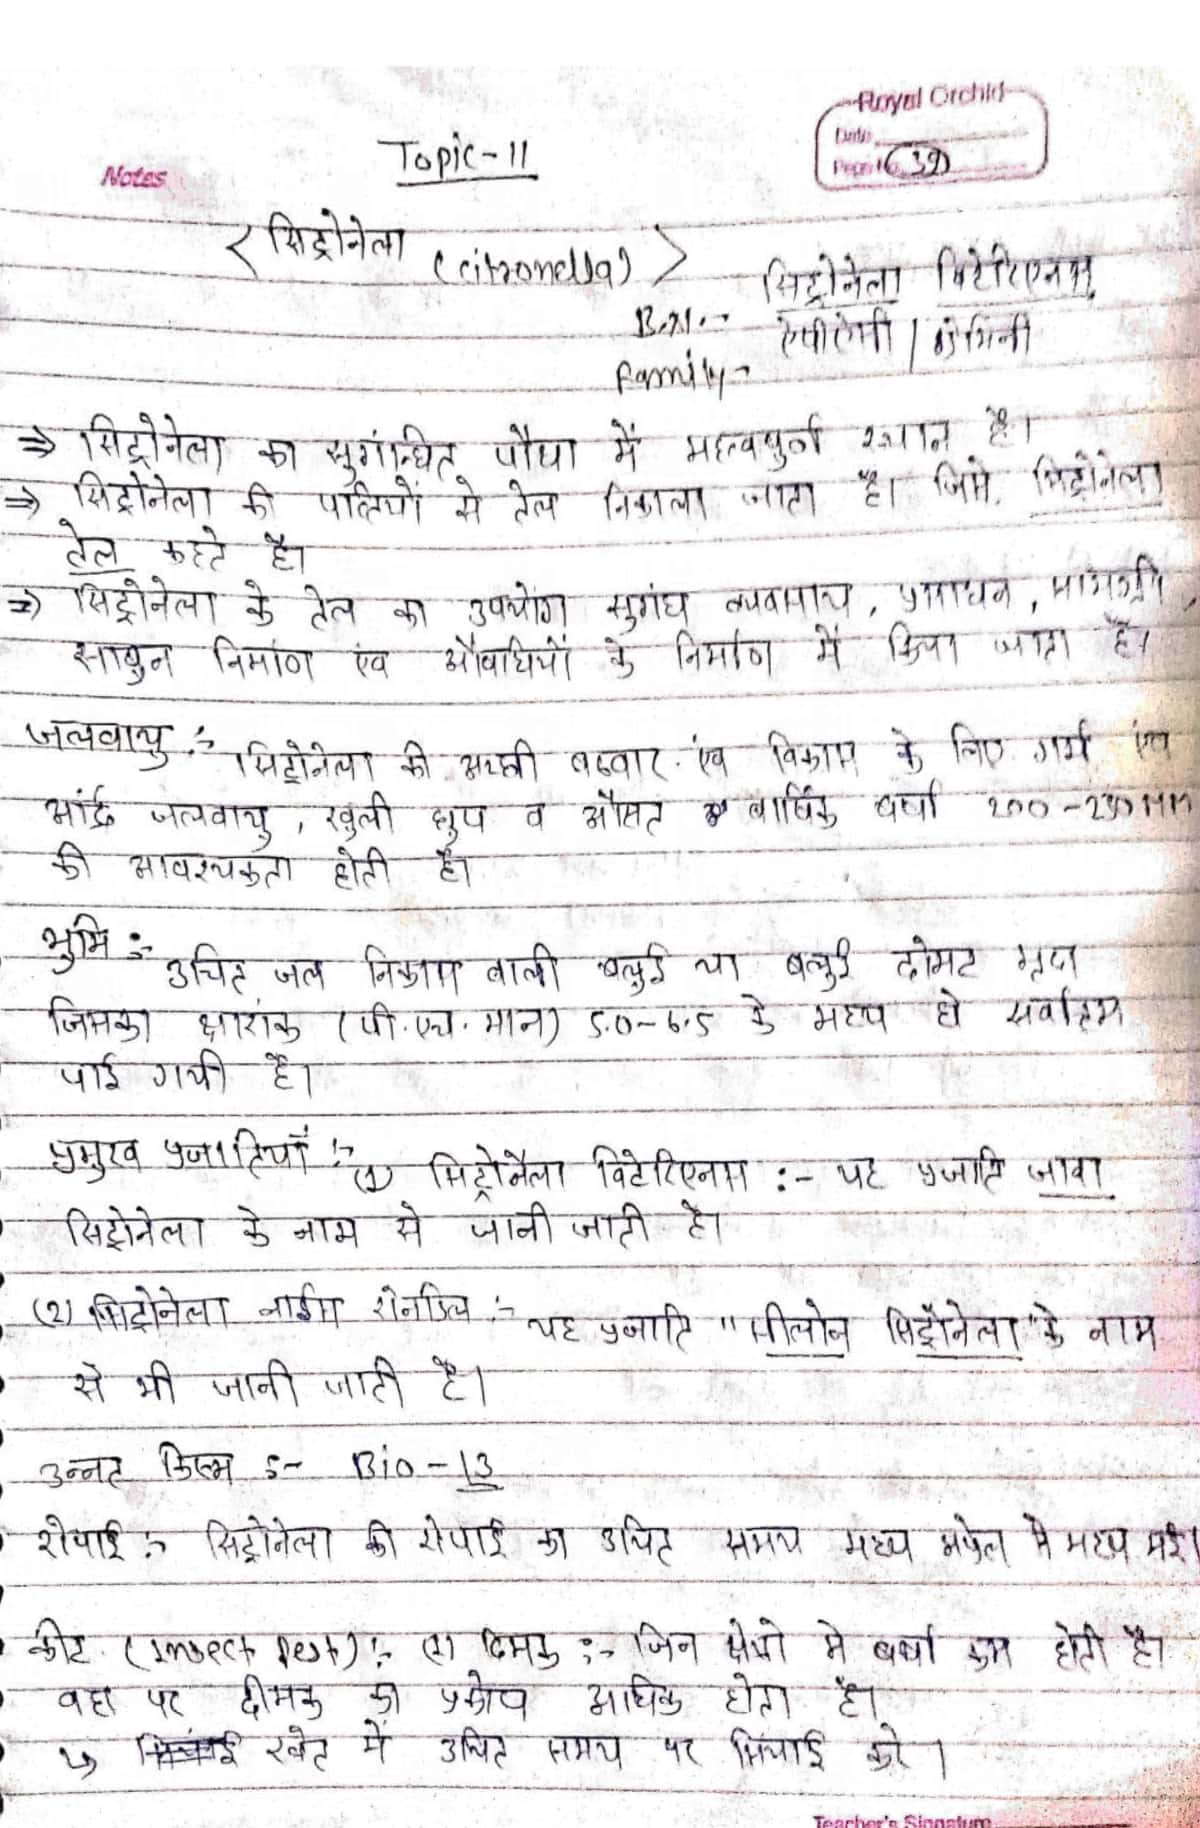 Royal Orchid
Date
Topic-11
Notes
Page No (39)
< सिट्रोनेला (citronella) >
सिट्रोनेला विटेरिएनस
B.N.:-
Family-
⇒ सिट्रोनेला का सुगंन्धित पौधा में महत्वपुर्ण स्थान है।
⇒ सिट्रोनेला की पत्तियों से तेल निकाला जाता है। जिसे सिट्रोनेला
तेल कहते है।
⇒ सिट्रोनेला के तेल का उपयोग सुगंध व्यवसाय, प्रसाधन, सामग्री,
साबुन निर्माण एंव औषधियों के निर्माण में किया जाता है।
जलवायु :- सिट्रोनेला की अच्छी बढवार एंव विकास के लिए गर्म एंव
आंर्द्र जलवायु, खुली धुप व औसत वार्षिक वर्षा 200-250mm
की आवश्यकता होती है।
भुमि :- उचित जल निकास वाली बलुई या बलुई दोमट मृदा
जिसका क्षारांक (पी.एच. मान) 5.0-6.5 के मध्य हो सर्वोत्तम
पाई गयी है।
प्रमुख प्रजातियाँ :- (1) सिट्रोनैला विटेरिएनस :- यह प्रजाति जावा
सिट्रोनेला के नाम से जानी जाती है।
(2) सिट्रोनेला नाईम शेनडिल :- यह प्रजाति "सीलोन सिट्रोनेला" के नाम
से भी जानी जाती है।
उन्नत किस्म :- Bio-13
रोपाई :- सिट्रोनेला की रोपाई का उचित समय मध्य अप्रेल से मध्य मई।
कीट (Insect Pest) :- (1) दिमक :- जिन क्षेत्रो मे वर्षा कम होती है।
वहा पर दीमक का प्रकोप अधिक होता है।
↳ खेत में उचित समय पर सिंचाई करे।
Teacher's Signature